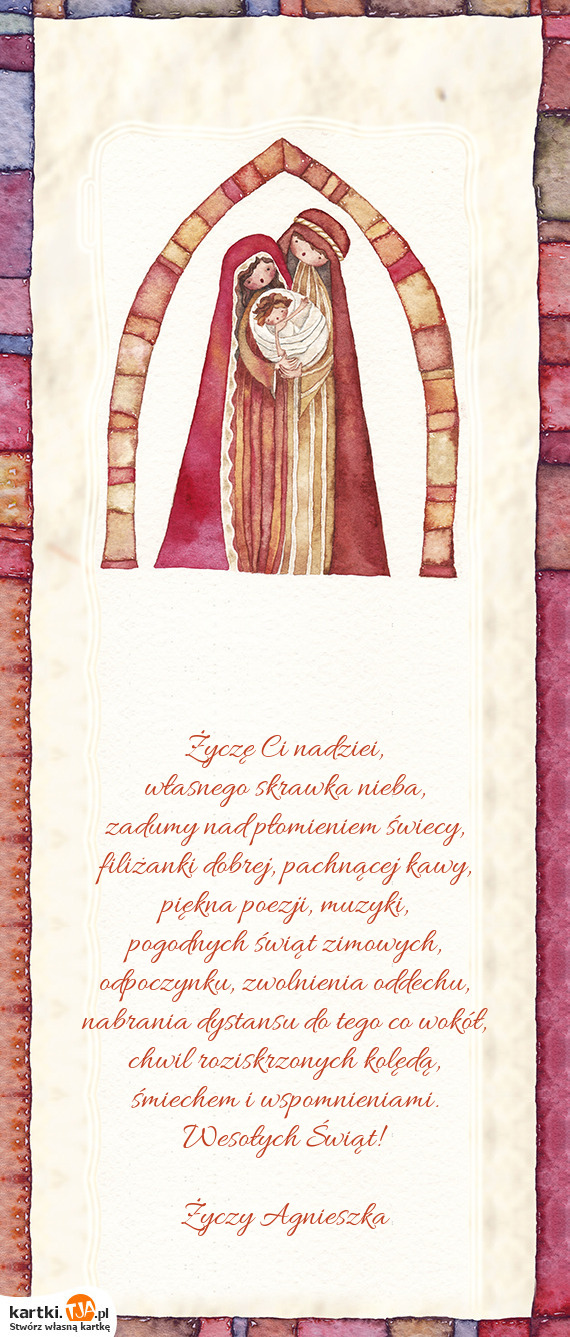 Życzę Ci nadziei,
własnego skrawka nieba,
zadumy nad płomieniem świecy,
filiżanki dobrej, pachnącej kawy,
piękna poezji, muzyki,
pogodnych świąt zimowych,
odpoczynku, zwolnienia oddechu,
nabrania dystansu do tego co wokół,
chwil roziskrzonych kolędą,
śmiechem i wspomnieniami.
Wesołych Świąt!
Życzy Agnieszka
kartki.TJA.pl
Stwórz własną kartkę